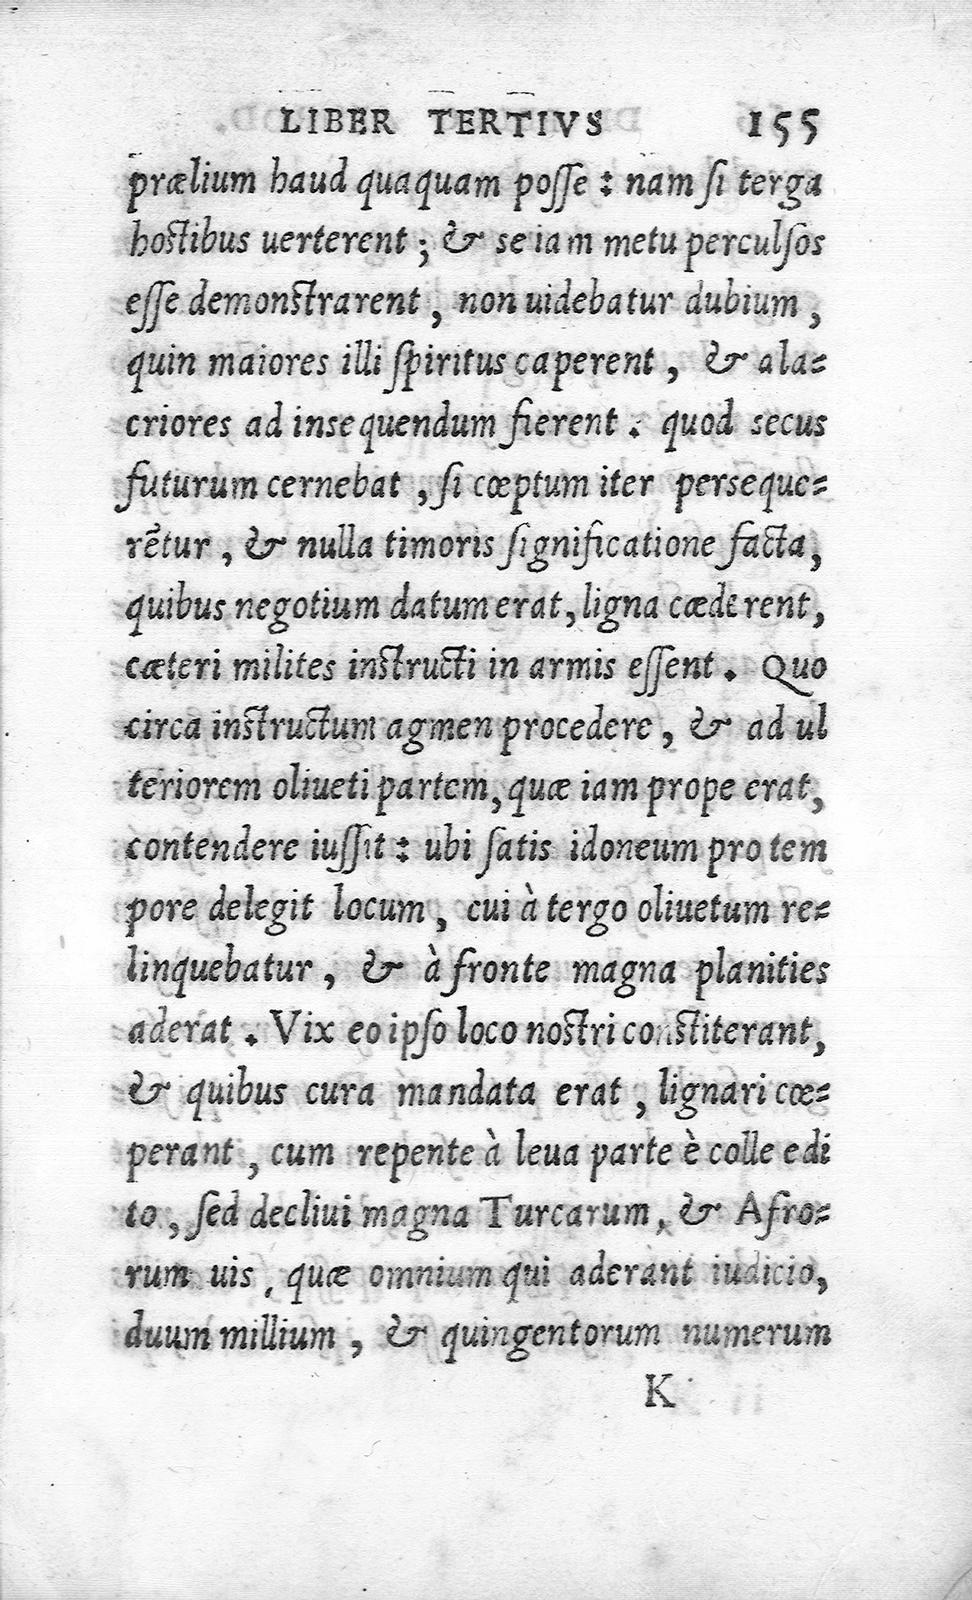 LIBER TERTIVS 155
prælium haud quaquam poſſe : nam ſi terga
hoſtibus uerterent ; & se iam metu perculſos
eſſe demonſtrarent , non uidebatur dubium ,
quin maiores illi ſpiritus caperent , & ala=
criores ad insequendum fierent . quod secus
futurum cernebat , ſi cœptum iter perseque=
rẽtur , & nulla timoris ſignificatione facta,
quibus negotium datum erat, ligna cæderent,
cæteri milites inſtructi in armis eſſent . Quo
circa inſtructum agmen procedere , & ad ul
teriorem oliueti partem, quæ iam prope erat,
contendere iuſſit : ubi ſatis idoneum pro tem
pore delegit locum , cui à tergo oliuetum re=
linquebatur , & à fronte magna planities
aderat . Vix eo ipſo loco noſtri conſtiterant,
& quibus cura mandata erat , lignari cœ=
perant , cum repente à leua parte è colle edi
to , ſed decliui magna Turcarum, & Afro=
rum uis , quæ omnium qui aderant iudicio,
duum millium , & quingentorum numerum
K